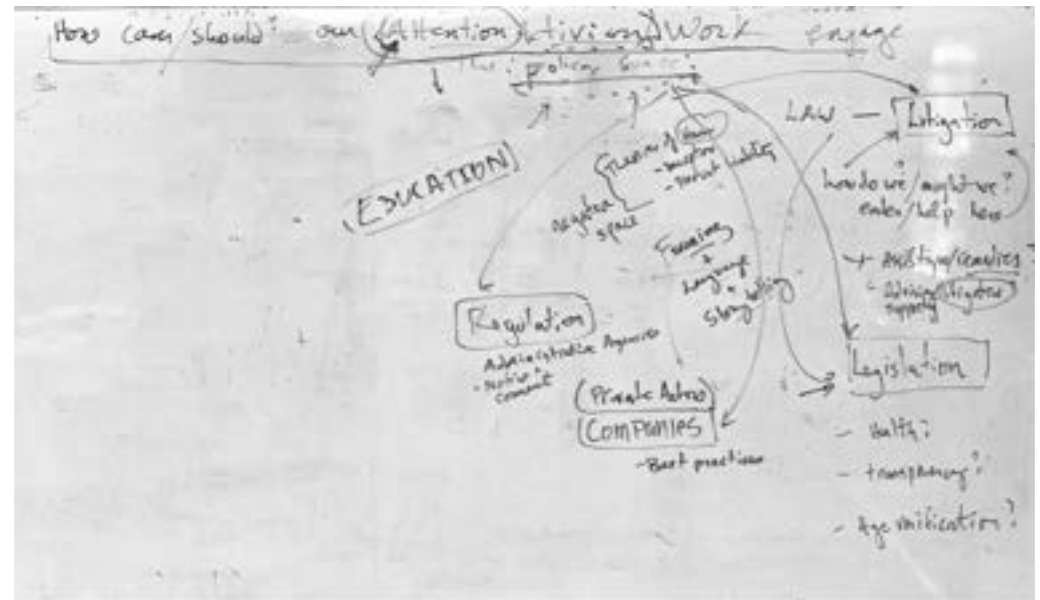 How can/should? our (Attention) Activism Work engage
the policy space?
LAW — Litigation
how do we/might we?
enter/help here
EDUCATION
negative
space
Theory of
- product liability
Framing
+
Language
+
storytelling
Regulation
Administrative Agencies
- Notice &
comment
(Private Actors)
Companies
- Best practices
Legislation
- Health?
- transparency?
- Age verification?